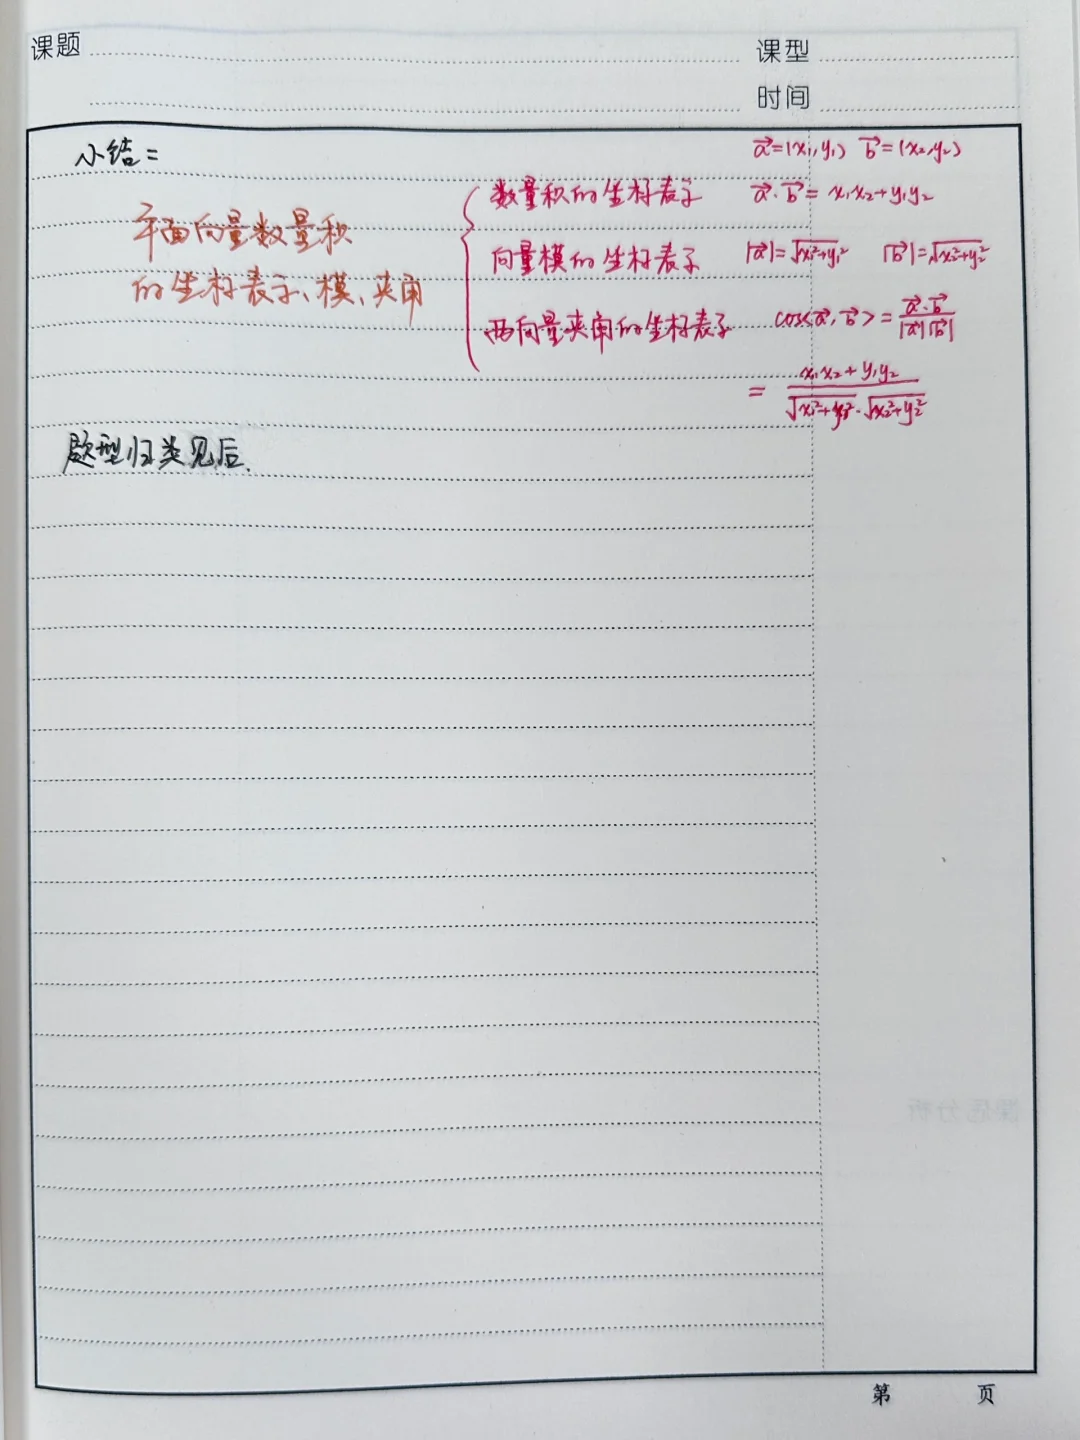 课题
课型
时间
小结:
平面向量数量积
的坐标表示、模、夹角
a⃗=(x₁,y₁) b⃗=(x₂,y₂)
数量积的坐标表示 a⃗·b⃗=x₁x₂+y₁y₂
向量模的坐标表示 |a⃗|=√(x₁²+y₁²) |b⃗|=√(x₂²+y₂²)
两向量夹角的坐标表示 cos<a⃗,b⃗>=a⃗·b⃗/|a⃗||b⃗|
=x₁x₂+y₁y₂/√(x₁²+y₁²)·√(x₂²+y₂²)
题型归类见后.
第 页